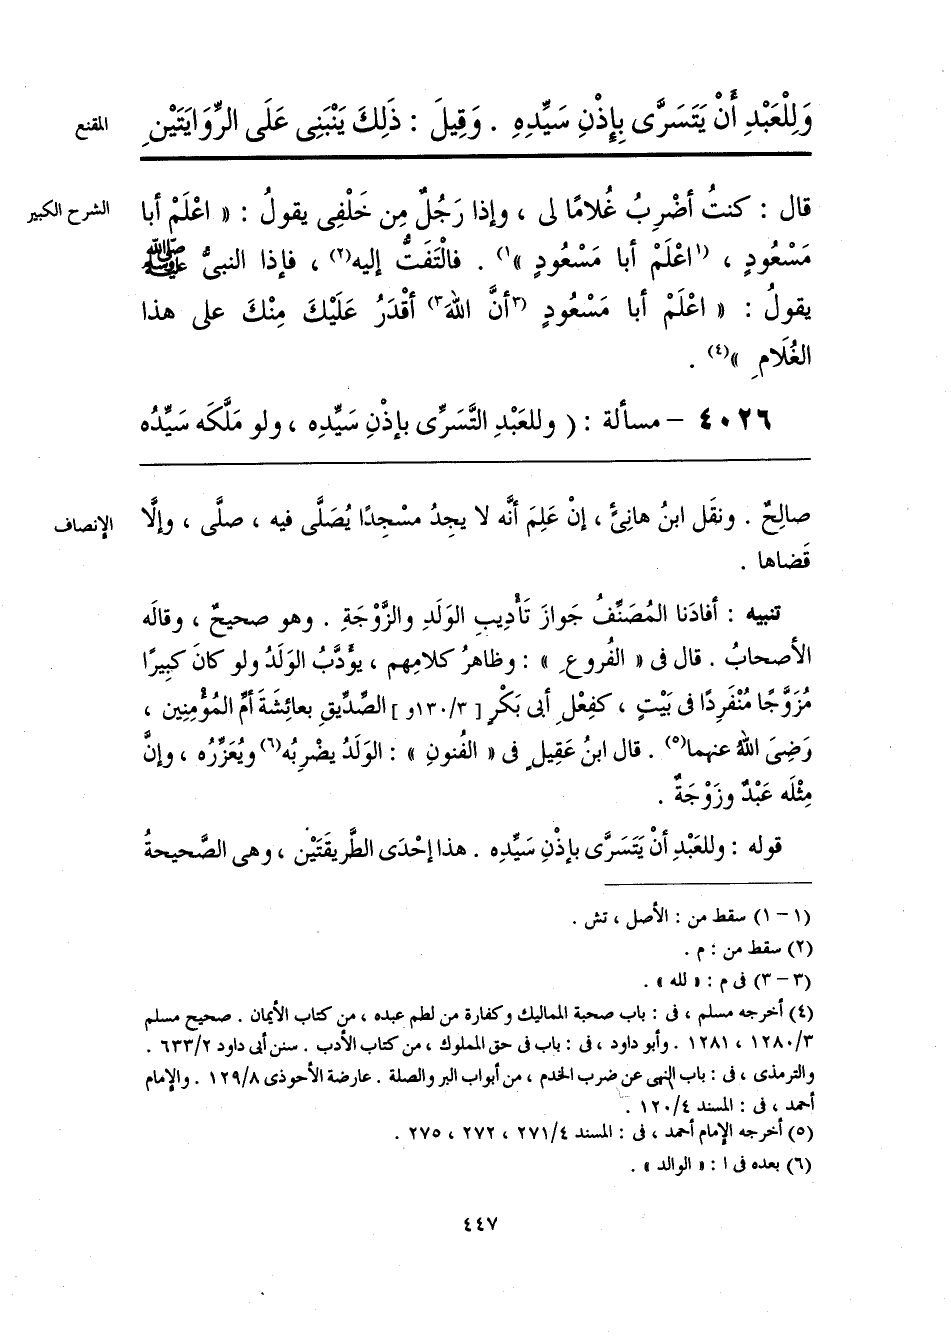 وَلِلْعَبْدِ أَنْ يَتَسَرَّى بِإِذْنِ سَيِّدِهِ . وَقِيلَ : ذَلِكَ يَنْبَنِى عَلَى الرِّوَايَتَيْنِ
المقنع
قال : كنتُ أضْرِبُ غُلامًا لى ، وإذا رَجُلٌ مِن خَلْفِى يقولُ : « اعْلَمْ أبا
الشرح الكبير
مَسْعُودٍ ، (١اعْلَمْ أبا مَسْعُودٍ »١) . فالْتَفَتُّ إليه(٢) ، فإذا النبىُّ ﷺ
يقولُ : « اعْلَمْ أبا مَسْعُودٍ (٣أنَّ اللهَ٣) أقْدَرُ عَلَيْكَ مِنْكَ على هذا
الغُلَامِ »(٤) .
٤٠٢٦ – مسألة : ( وللعَبْدِ التَّسَرِّى بإذْنِ سَيِّدِه ، ولو مَلَّكَه سَيِّدُه
صالِحٌ . ونقَل ابنُ هانِئٌ ، إنْ عَلِمَ أنَّه لا يجِدُ مسْجِدًا يُصَلَّى فيه ، صلَّى ، وإلَّا
الإنصاف
قَضاها .
تنبيه : أفادَنا المُصَنِّفُ جَوازَ تَأْدِيبِ الوَلَدِ والزَّوْجَةِ . وهو صحيحٌ ، وقالَه
الأصحابُ . قال فى « الفُروعِ » : وظاهرُ كلامِهم ، يؤَدَّبُ الوَلَدُ ولو كانَ كبِيرًا
مُزَوَّجًا مُنْفَرِدًا فى بَيْتٍ ، كفِعْلِ أبى بَكْرٍ [ ١٣٠/٣و ] الصِّدِّيقِ بعائِشَةَ أمِّ المُؤْمِنِين ،
رَضِىَ اللهُ عنهما(٥) . قال ابنُ عَقِيلٍ فى « الفُنونِ » : الوَلَدُ يضْرِبُه(٦) ويُعَزِّرُه ، وإنَّ
مِثْلَه عَبْدٌ وزَوْجَةٌ .
قوله : وللعَبْدِ أنْ يَتَسَرَّى بإذْنِ سَيِّدِه . هذا إحْدَى الطَّرِيقَتَيْن ، وهى الصَّحيحةُ
(١ – ١) سقط من : الأصل ، تش .
(٢) سقط من : م .
(٣ – ٣) فى م : « لله » .
(٤) أخرجه مسلم ، فى : باب صحبة المماليك وكفارة من لطم عبده ، من كتاب الأيمان . صحيح مسلم
١٢٨٠/٣ ، ١٢٨١ . وأبو داود ، فى : باب فى حق المملوك ، من كتاب الأدب . سنن أبى داود ٦٣٣/٢ .
والترمذى ، فى : باب النهى عن ضرب الخدم ، من أبواب البر والصلة . عارضة الأحوذى ١٢٩/٨ . والإمام
أحمد ، فى : المسند ١٢٠/٤ .
(٥) أخرجه الإمام أحمد ، فى : المسند ٢٧١/٤ ، ٢٧٢ ، ٢٧٥ .
(٦) بعده فى ا : « الوالد » .
٤٤٧